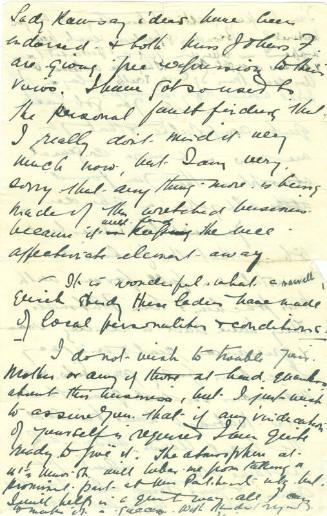 Lady Ramsay ideas have been
endorsed & both Miss Johers &
are giving free expression to their
views. I have got so used to
the personal fault finding that
I really don't mind it very
much now, but I am very
sorry that any thing more is being
made of this wretched business
because it will keep the
element away.
It is wonderful what a marvell
quick study these ladies have made
of local personalities & conditions.
I do not wish to trouble your
Mother or any of those at head quarters
about this business, but I just wish
to assure you that if any vindication
of yourself is required I am quite
ready to give it. The atmosphere at
will hinder me from taking a
prominent part at the but
I will help in a quiet way all I can
to make it a success With kindest regards